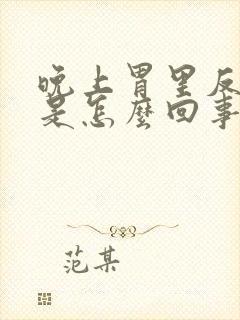 晚上胃里反
是怎麼回事
范某